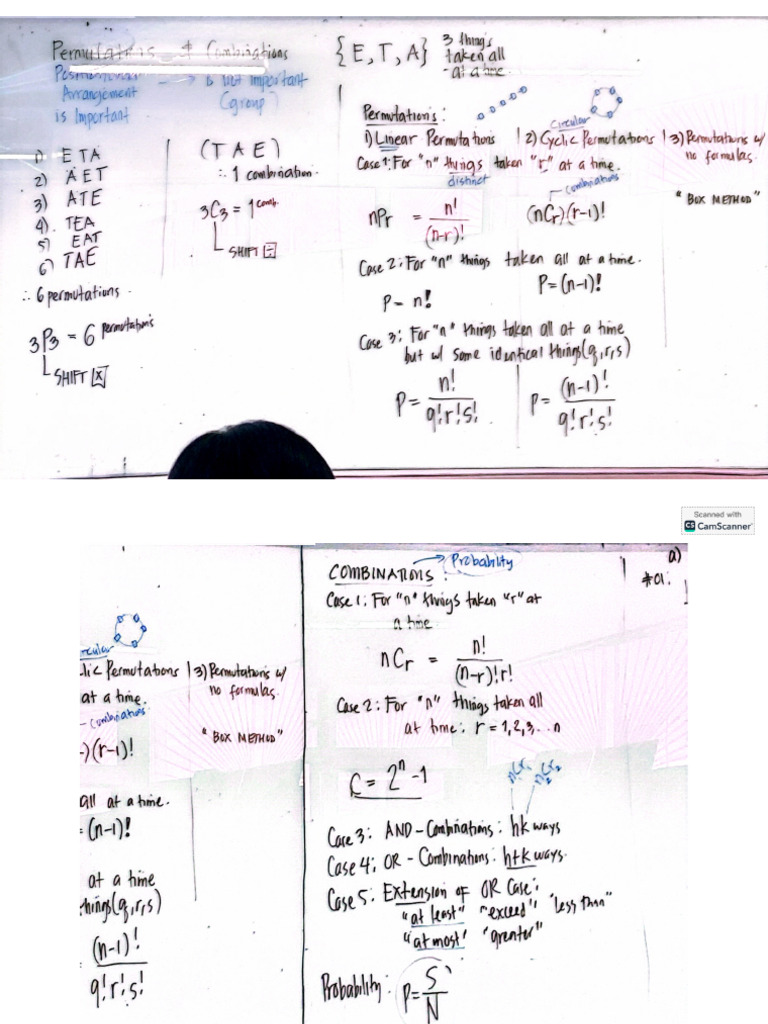 Permutations & Combinations
Arrangement
is Important
is not important
(group)
1) E TA
2) A ET
3) ATE
4). TEA
5) EAT
6) TAE
∴ 6 permutations.
3P3 = 6 permutations
SHIFT [x]
(T A E)
∴ 1 combination.
3C3 = 1 comb.
SHIFT [÷]
{E, T, A}
3 things
taken all
at a time.
Permutations:
1) Linear Permutations
Case 1: For "n" things taken "r" at a time.
distinct
nPr = n!/(n-r)!
Circular
2) Cyclic Permutations
combinations
(nCr)(r-1)!
3) Permutations w/
no formulas.
"BOX METHOD"
Case 2: For "n" things taken all at a time.
P = n!
P = (n-1)!
Case 3: For "n" things taken all at a time
but w/ some identical things (q,r,s)
P = n!/q!r!s!
P = (n-1)!/q!r!s!
Scanned with
CS CamScanner
lic Permutations
3) Permutations w/
no formulas.
at a time.
combinations
)(r-1)!
"BOX METHOD"
all at a time.
= (n-1)!
at a time
things (q,r,s)
(n-1)!
q!r!s!
COMBINATIONS:
Probability
Case 1: For "n" things taken "r" at
a time
nCr = n!/(n-r)!r!
Case 2: For "n" things taken all
at time: r = 1,2,3,... n
C = 2^n -1
nCr1 nCr2
Case 3: AND-Combinations: hk ways
Case 4: OR - Combinations: h+k ways.
Case 5: Extension of OR Case:
"at least" "exceed" "less than"
"at most" "greater"
Probability: P = S/N
a)
#01: